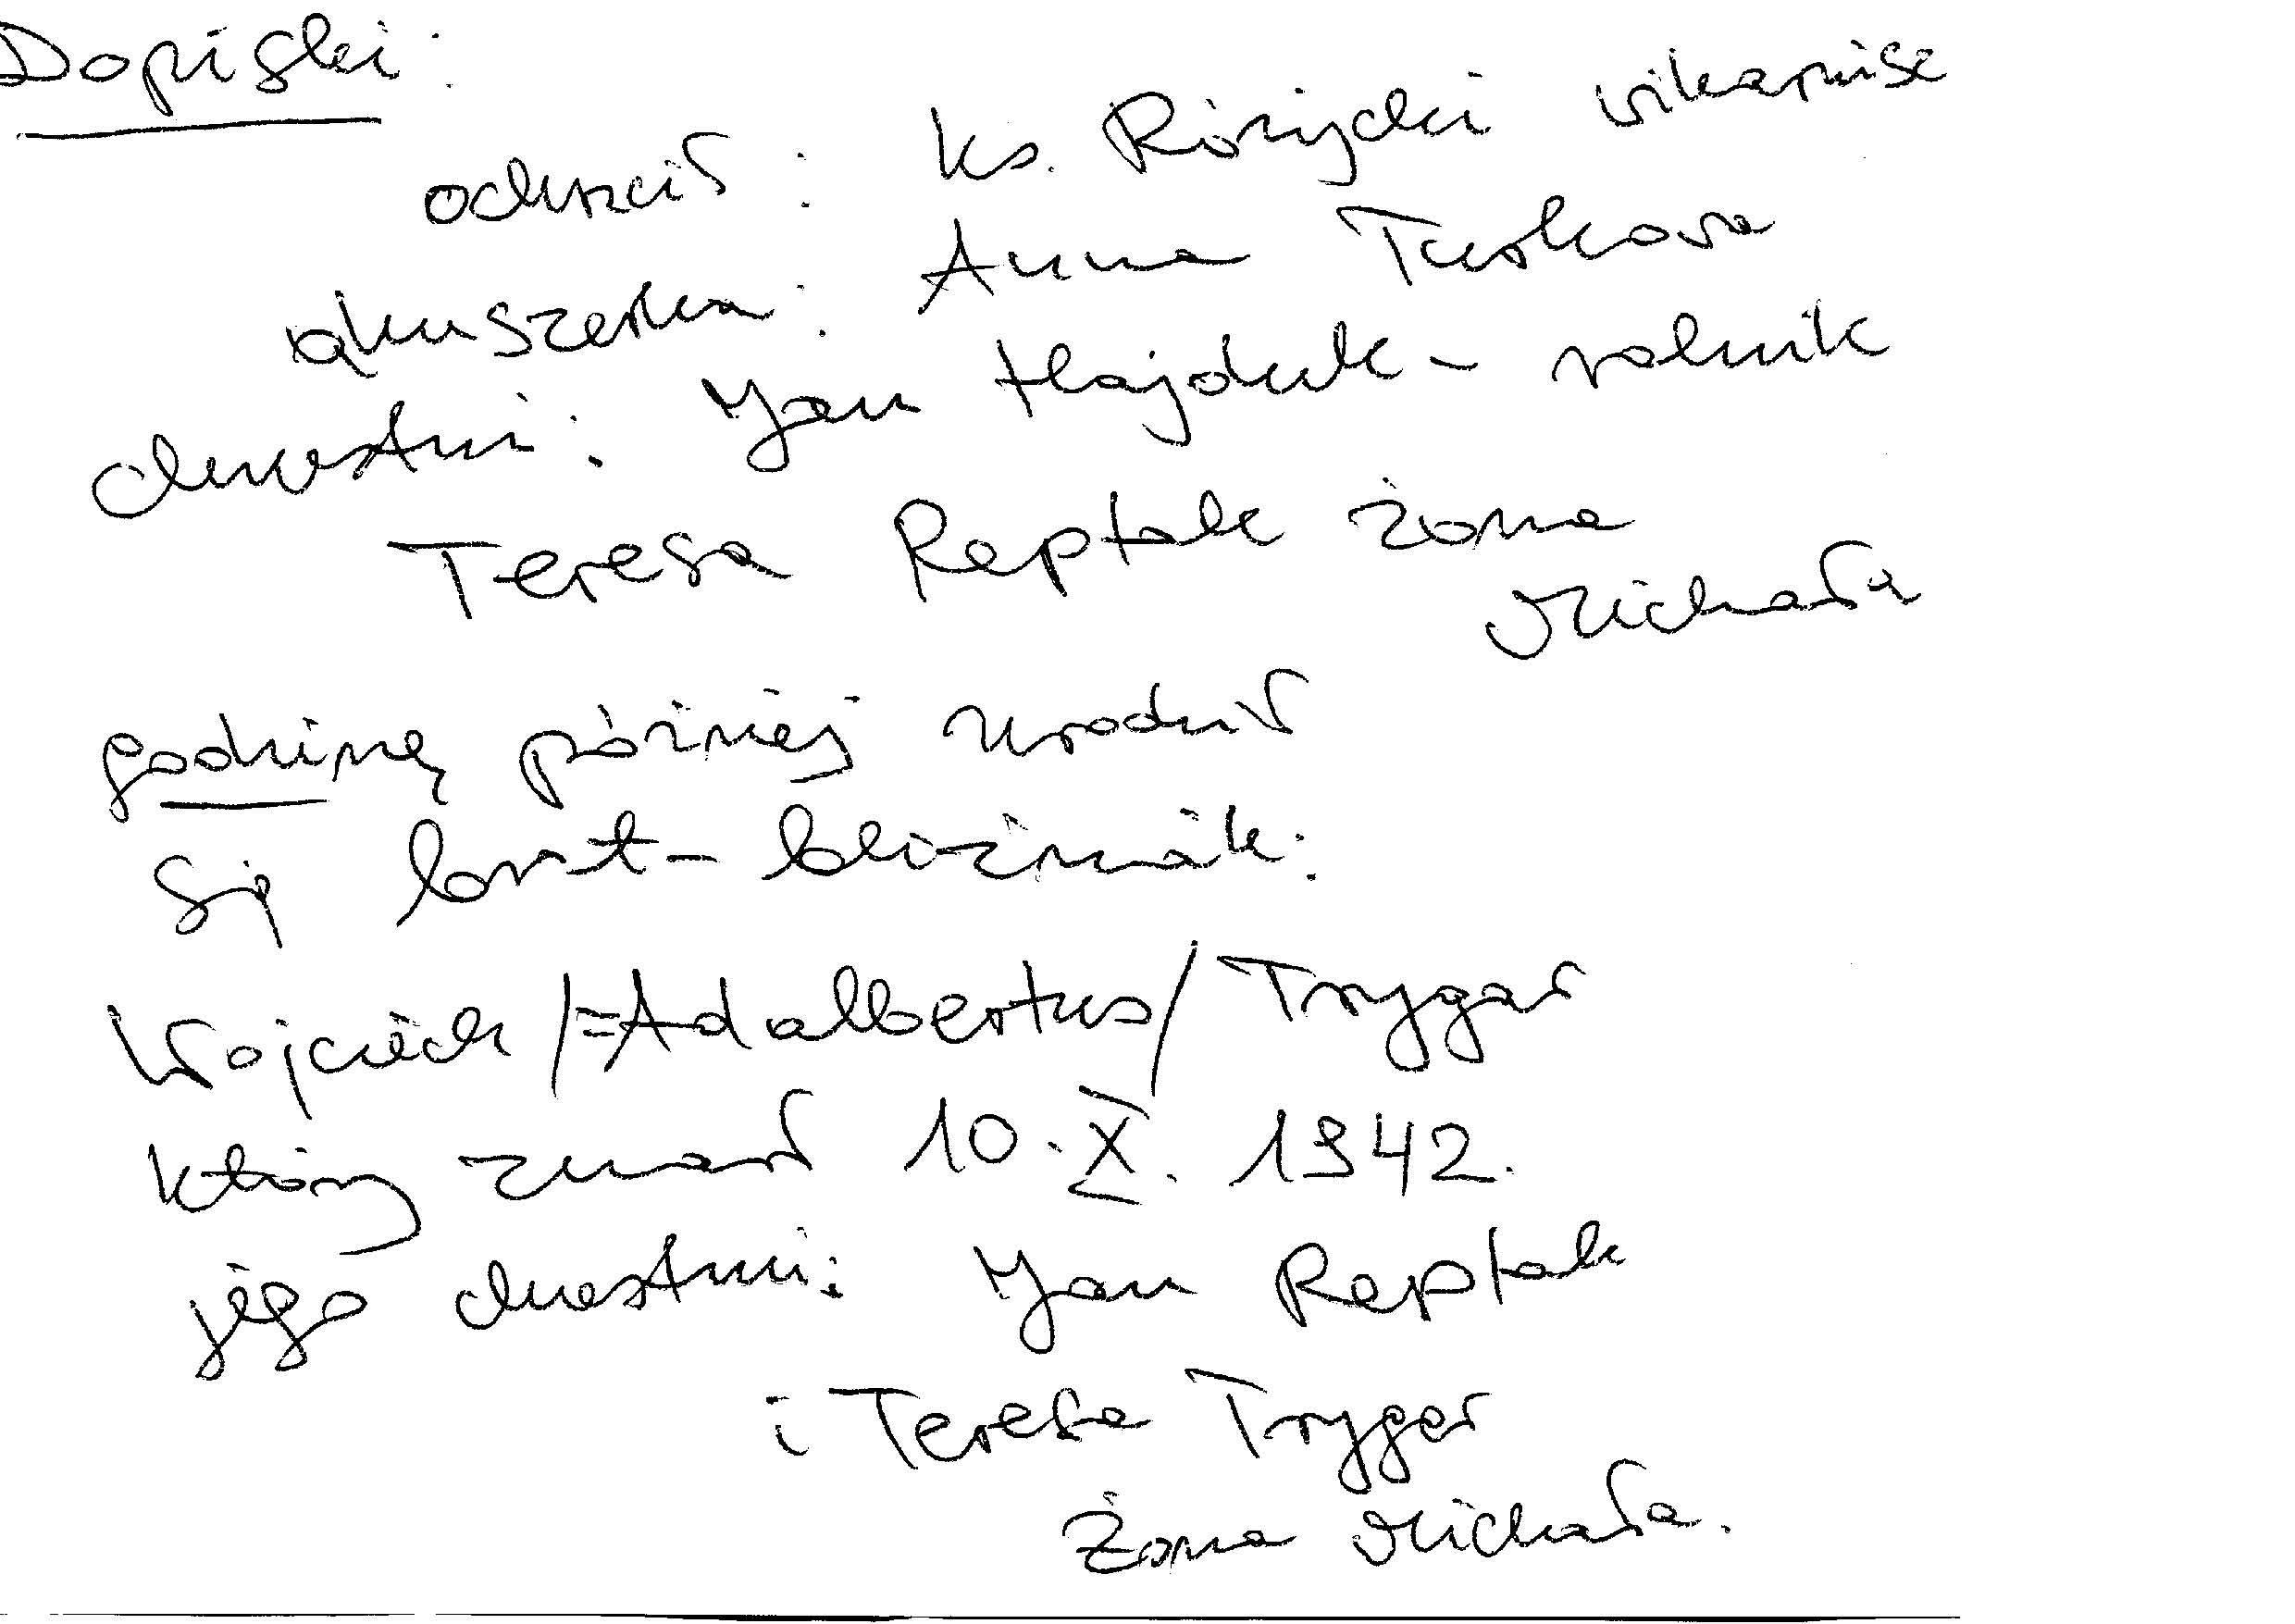 Dopiski:
ochrzcił: ks. Różycki wikariusz
akuszerka: Anna Turkowa
chrzestni: Jan Hajduk – rolnik
Teresa Reptak żona
Michała
godzinę później urodził
się brat – bliźniak:
Wojciech /=Adalbertus/ Trygar
który zmarł 10.X.1942.
jego chrzestni: Jan Reptak
i Teresa Trygar
żona Michała.